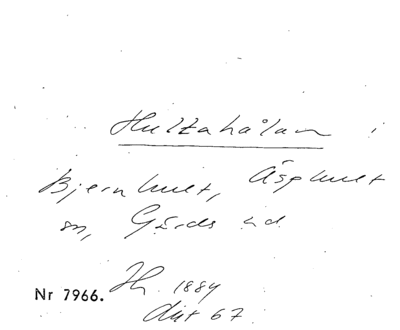 Hultahålan i
Bjernhult, Äsphult
sn, Gärds hd.
Nr 7966. Hn. 1884
dikt 67.